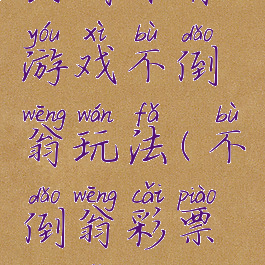 yóu xì bù dǎo
游戏不倒
wēng wán fǎ bù
翁玩法(不
dǎo wēng cǎi piào
倒翁彩票